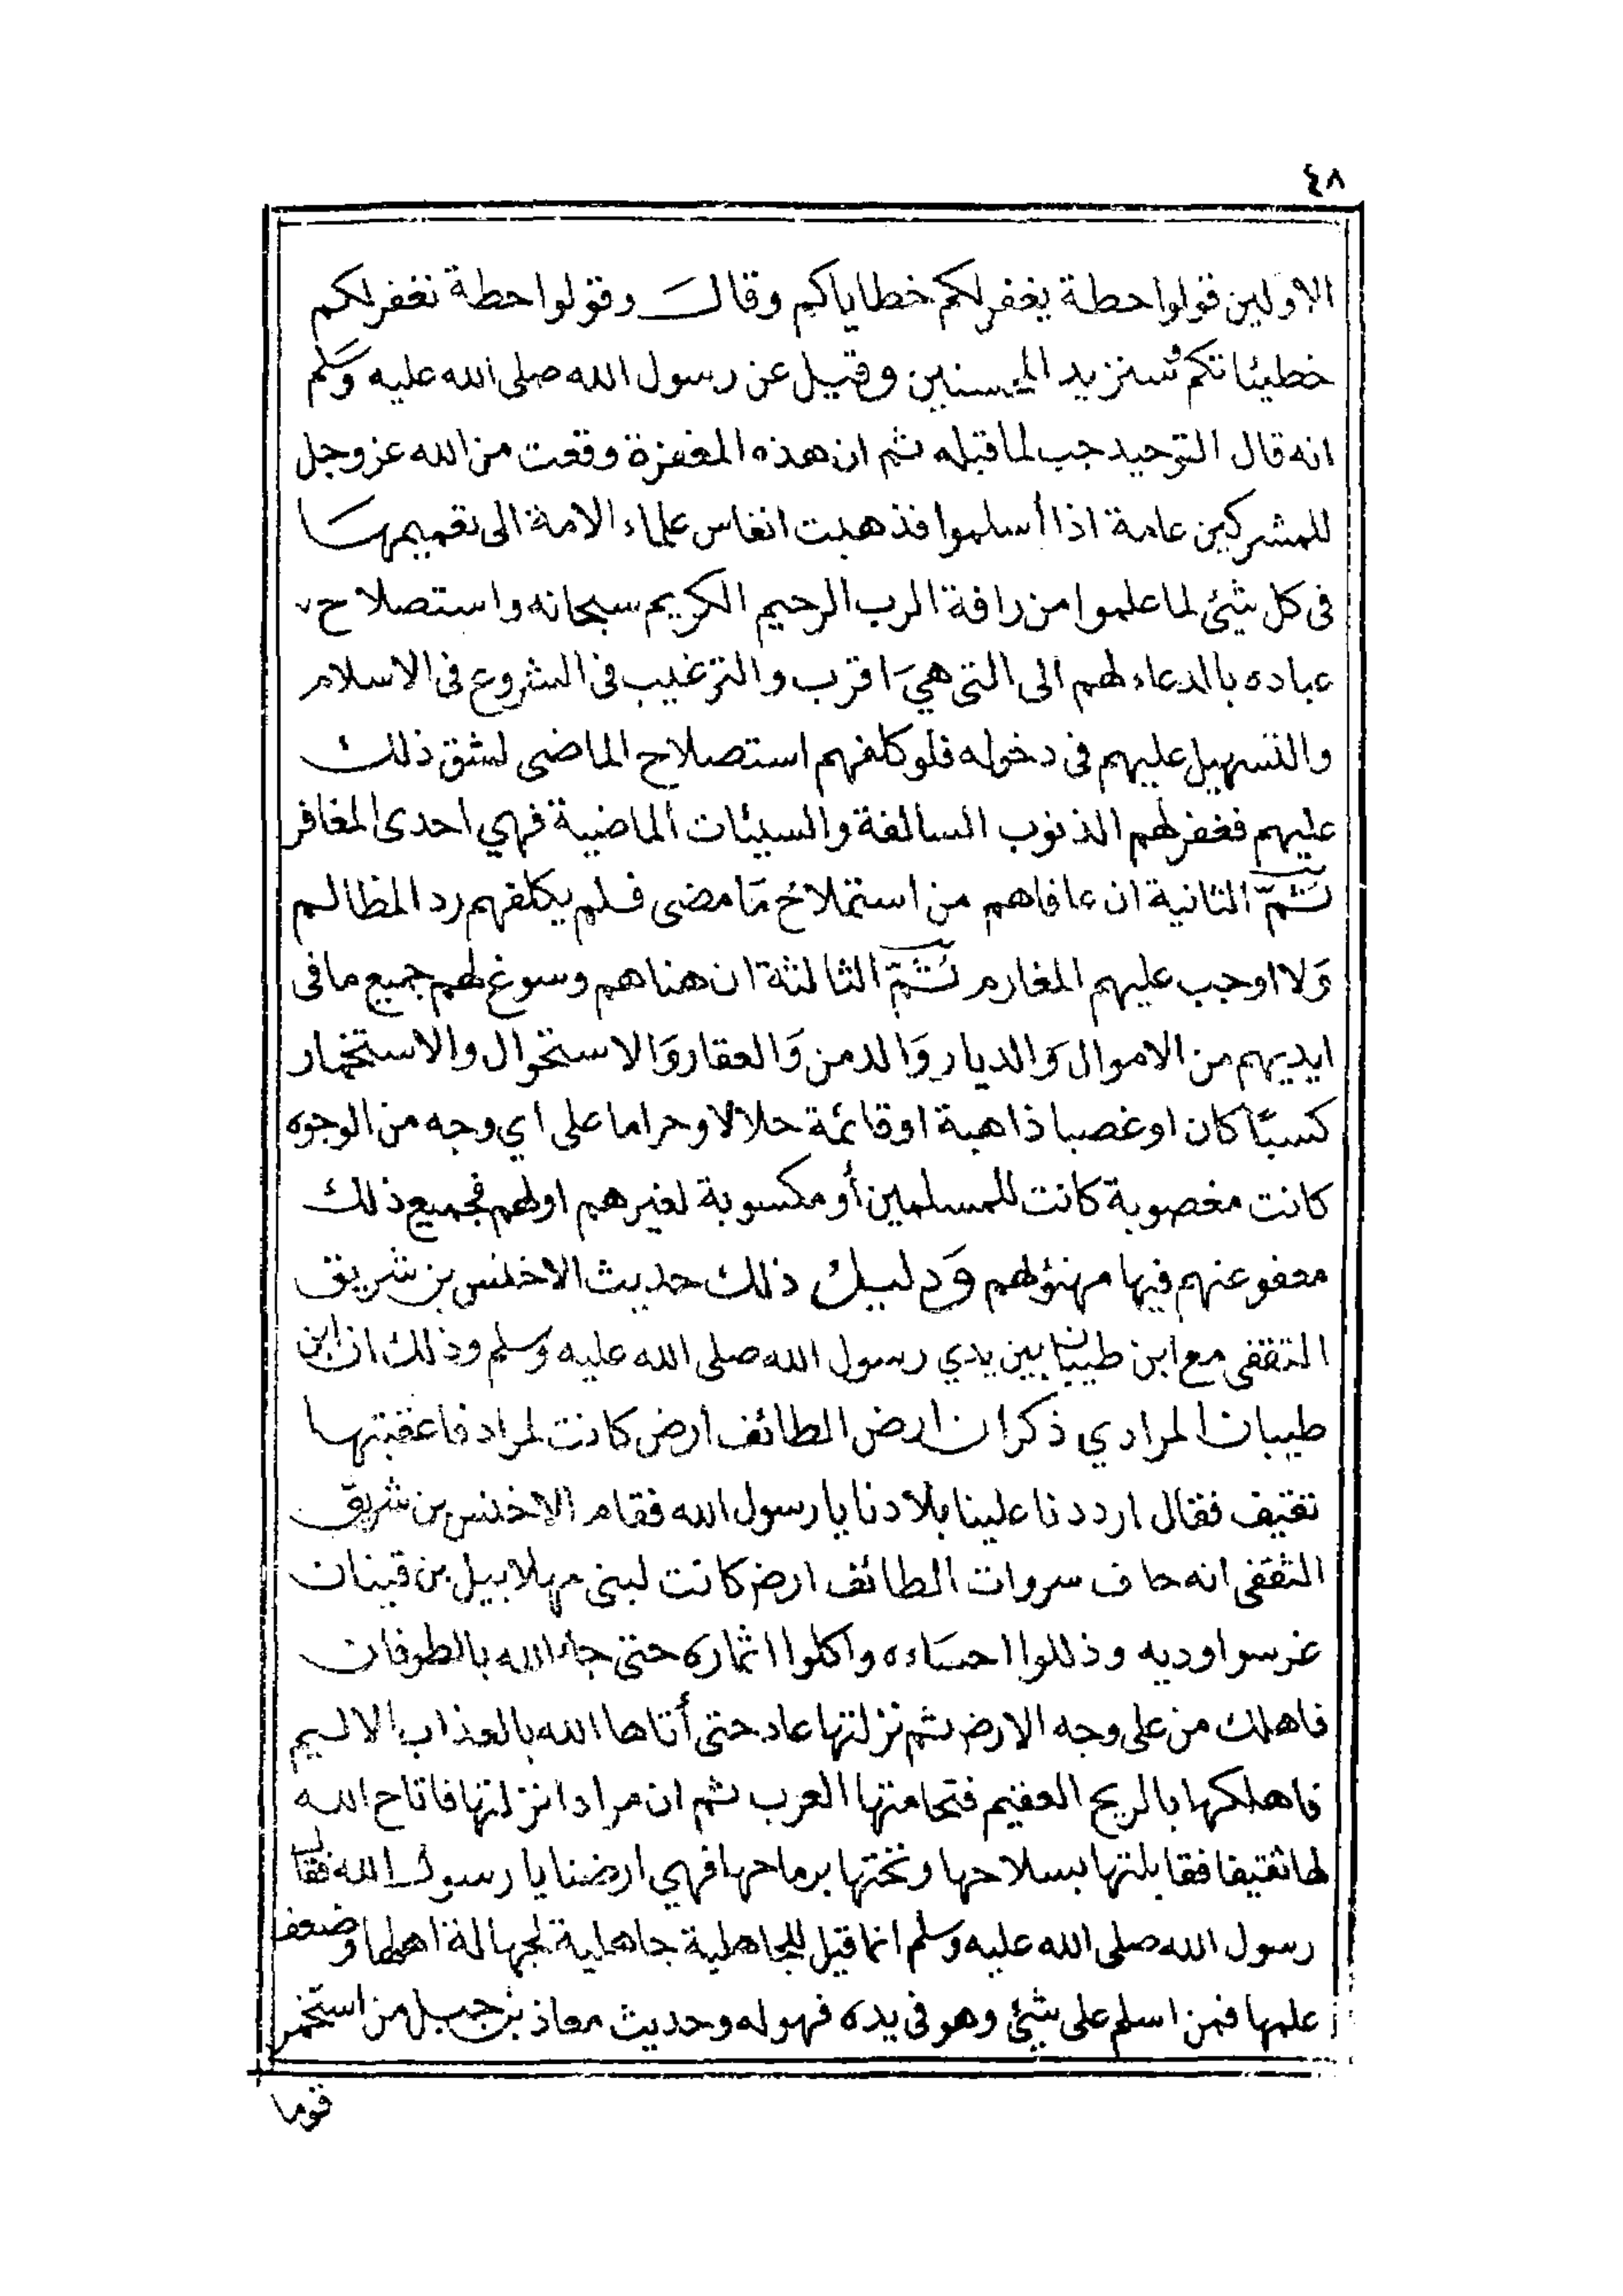 ٤٨
الاولين قولوا حطة يغفر لكم خطاياكم وقال وقولوا حطة نغفر لكم
خطيئاتكم وسنزيد المحسنين وقيل عن رسول الله صلى الله عليه وَسَلم
انه قال التوحيد جب لما قبله ثم ان هذه المغفرة وقعت من الله عز وجل
للمشركين عامة اذا أسلموا فذهبت انفاس علماء الامة الى تعميمها
فى كل شيئ لما علموا من رافة الرب الرحيم الكريم سبحانه واستصلاح
عباده بالدعاء لهم الى التى هيَ اقرب والترغيب فى الشروع فى الاسلام
والتسهيل عليهم فى دخوله فلو كلفهم استصلاح الماضى لشق ذلك
عليهم فغفر لهم الذنوب السالفة والسيئات الماضية فهي احدى المغافر
ثمّ الثانية ان عافاهم من مَا مضى فلم يكلفهم رد المظالم
وَلا اوجب عليهم المغارم ثمّ الثالثة ان هناهم وسوغ لهم جميع ما فى
ايديهم من الاموال وَالديار وَالدمن وَالعقار وَالاستخوال والاستخمار
كسبًا كان او غصبا ذاهبة او قائمة حلالا او حراما على اي وجه من الوجوه
كانت مغصوبة كانت للمسلمين أو مكسوبة لغيرهم او لهم فجميع ذلك
معفو عنهم فيها مهنؤلهم وَدليل ذلك حديث الاخنس بن شريق
الثقفى مع ابن طبيان بين يدي رسول الله صلى الله عليه وسلم وذلك ان ابن
طبيان المرادي ذكر ان ارض الطائف ارض كانت لمراد فاعقبتها
ثقيف فقال ارددنا علينا بلادنا يا رسول الله فقام الاخنس بن شريق
الثقفى انه حاف سروات الطائف ارض كانت لبنى مهلابيل بن قينان
غرسوا وديه وذللوا احسَاءه واكلوا اثماره حتى جاء الله بالطوفان
فاهلك من على وجه الارض ثم نزلتها عاد حتى أتاها الله بالعذاب الاليم
فاهلكها بالريح العقيم فتحامتها العرب ثم ان مرادا نزلتها فاتاح الله
لها ثقيفا فقابلتها بسلاحها ونختها برماحها فهي ارضنا يا رسول الله فقال
رسول الله صلى الله عليه وسلم انما قيل للجاهلية جاهلية لجهالة اهلها وضعف
علمها فمن اسلم على شيئ وهو فى يده فهو له وحديث معاذ بن جبل من استخمر
قوما